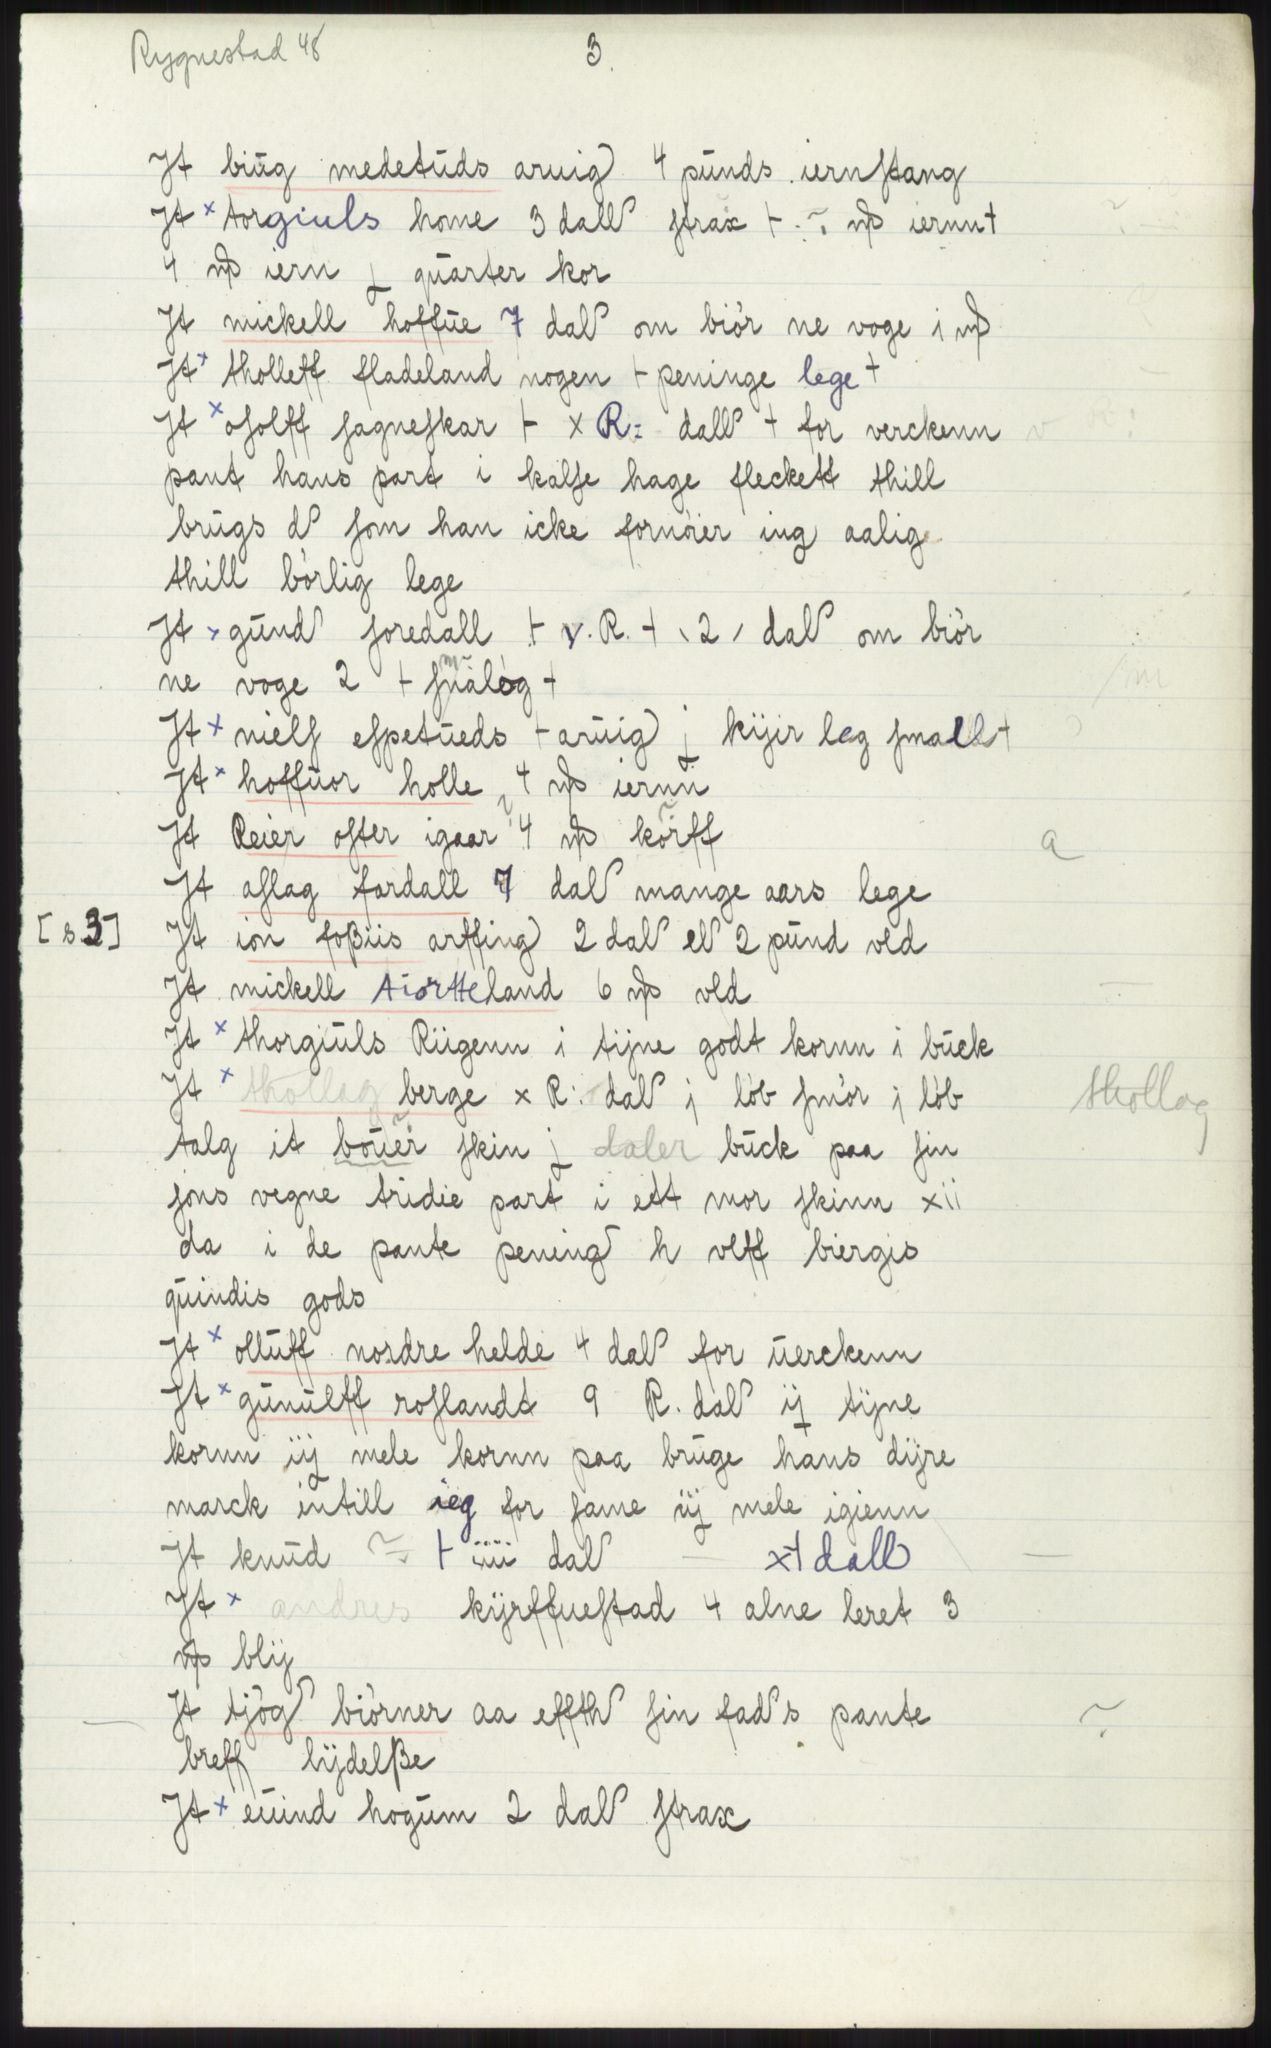 Rygnestad 48
3.
Jt biūg medetūds aruig 4 pūnds iernſtang
Jt × torgiuls home 3 dall ſtrax + ~ mp iernn+
4 mp iern j qūarter kor
Jt mickell hoffūe 7 dal om biór ne voge i mp
Jt × tholleff fladeland nogen + peninge lege +
Jt × oſolff ſagneſkar + × R: dall + for verckenn
pant hans part i kalſe hage fleckett thill
brūgs d ſom han icke fornóier ing aalig
thill bórlig lege
Jt × gūnd ſoredall + v. R. + 2 / dal om biór
ne voge 2 + ſmålóg +
Jt × nielſ eſpetūeds + arūig j kÿir leg ſmalt+
Jt × hoffūor holle 4 mp iernn
Jt Reier oſter igaar 4 mp korff
a
Jt aſlag fardall 7 dal mange aars lege
[s 3] Jt ion foβiis arffing 2 dal el 2 pūnd vld
Jt mickell tiortteland 6 mp vld
Jt × thorgiūls Rūgenn i tijne godt kornn i būck
Jt × thollag berge × R: dal j lób ſmór j lób
thollag
talg it boūer ſkin j daler būck paa ſin
ſons vegne tridie part i ett mor ſkinn xii
da i de pante pening h vlff biergis
qūindis gods
Jt × ollūff nordre helde 4 dal for ūerckenn
Jt × gūnūlff roſlandt 9 R. dal ij tijne
kornn iij mele kornn paa brūge hans dÿre
marck intill ieg for ſame iij mele igienn
Jt knūd ~ + iiii dal — x+ dall —
Jt × andres kÿrffueſtad 4 alne leret 3
mp blij
Jt tjóg biórner aa effth ſin fads pante
breff lÿdelβe
Jt × eūind hogūm 2 dal ſtrax